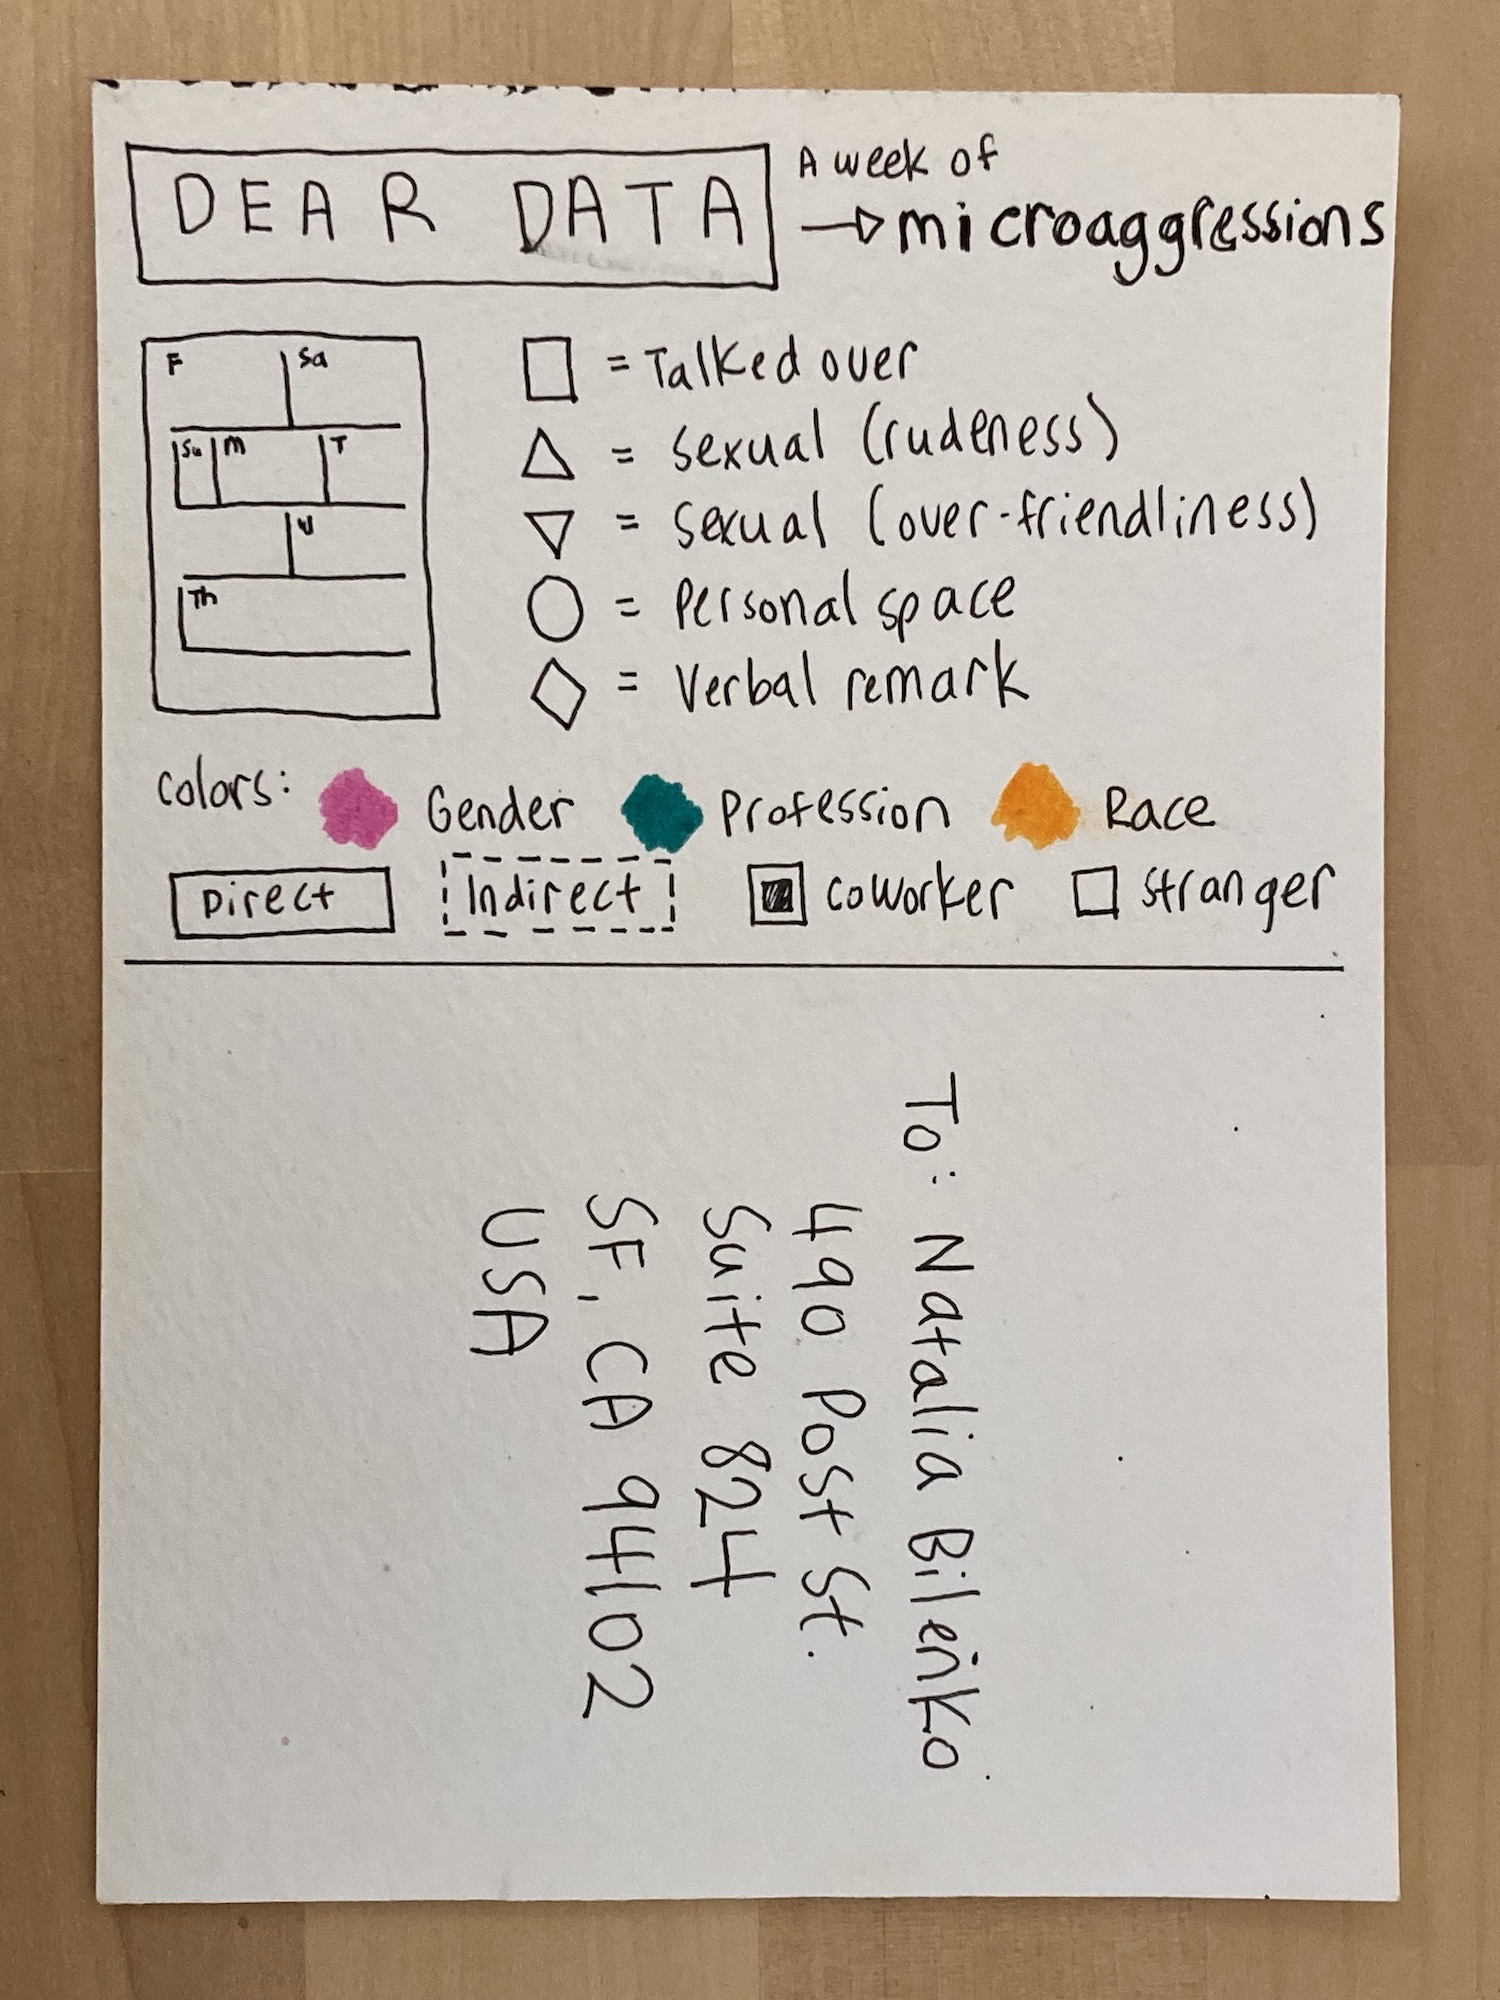 DEAR DATA
A week of
microaggressions
F
Sa
Su
M
T
W
Th
= Talked over
= Sexual (rudeness)
= Sexual (over-friendliness)
= Personal space
= Verbal remark
Colors: Gender Profession Race
Direct Indirect coworker stranger
To: Natalia Bilenko
490 Post St.
Suite 824
SF, CA 94102
USA